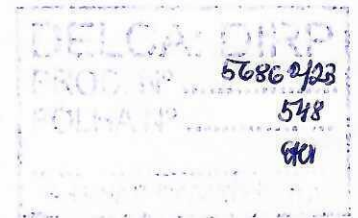 DELCA: DIRP
PROC. Nº 56862/23
FOLHA Nº 548